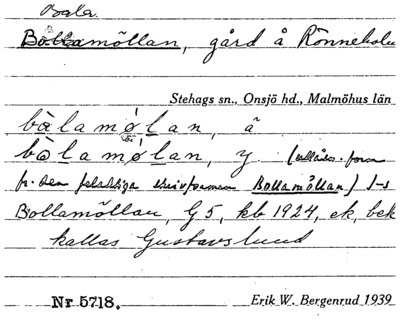 Bollamöllan, gård å Rönneholm
Stehags sn., Onsjö hd., Malmöhus län
bàlamǿlan, ä
bòlamǿlan, y (uttals-form
fr. den felaktiga skrivformen Bollamöllan) 1-s
Bollamöllan, G 5, kb 1924, ek, bek
kallas Gustavslund
Nr 5718.
Erik W. Bergenrud 1939